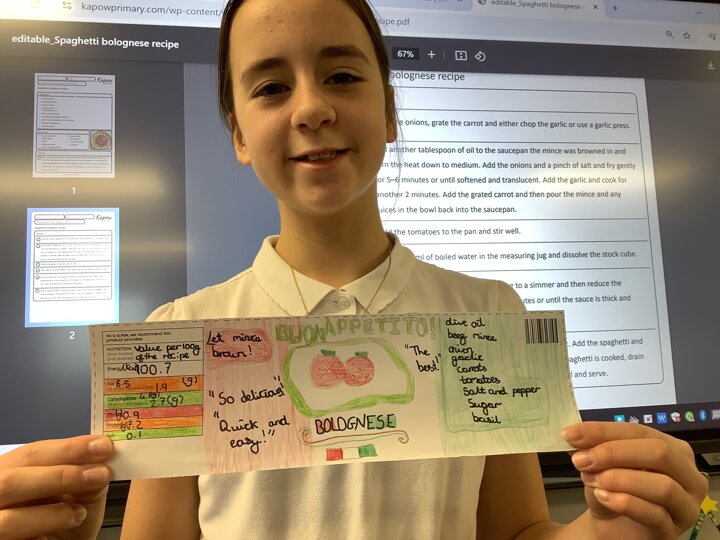 kapowprimary.com/wp-content/
ecipe.pdf
editable_Spaghetti bolognese
editable_Spaghetti bolognese recipe
67%
bolognese recipe
Kapow
1
Kapow
2
e onions, grate the carrot and either chop the garlic or use a garlic press.
another tablespoon of oil to the saucepan the mince was browned in and
n the heat down to medium. Add the onions and a pinch of salt and fry gently
or 5–6 minutes or until softened and translucent. Add the garlic and cook for
another 2 minutes. Add the grated carrot and then pour the mince and any
juices in the bowl back into the saucepan.
d the tomatoes to the pan and stir well.
ml of boiled water in the measuring jug and dissolve the stock cube.
g to a simmer and then reduce the
utes or until the sauce is thick and
. Add the spaghetti and
ghetti is cooked, drain
l and serve.
As a guide, we recommend this
product provides:
NUTRITION Value per 100g
of the recipe
Energy 100.7
Fat 6.5 (g)
1.9
Carbohydrate 4.1(g)
2.7(g)
0.9
0.1
Let mince
brown!
"So delicious"
"Quick and
easy!"
BUON APPETITO!
BOLOGNESE
"The
best!"
olive oil
beef mince
onion
garlic
carrots
tomatoes
Salt and pepper
Sugar
basil